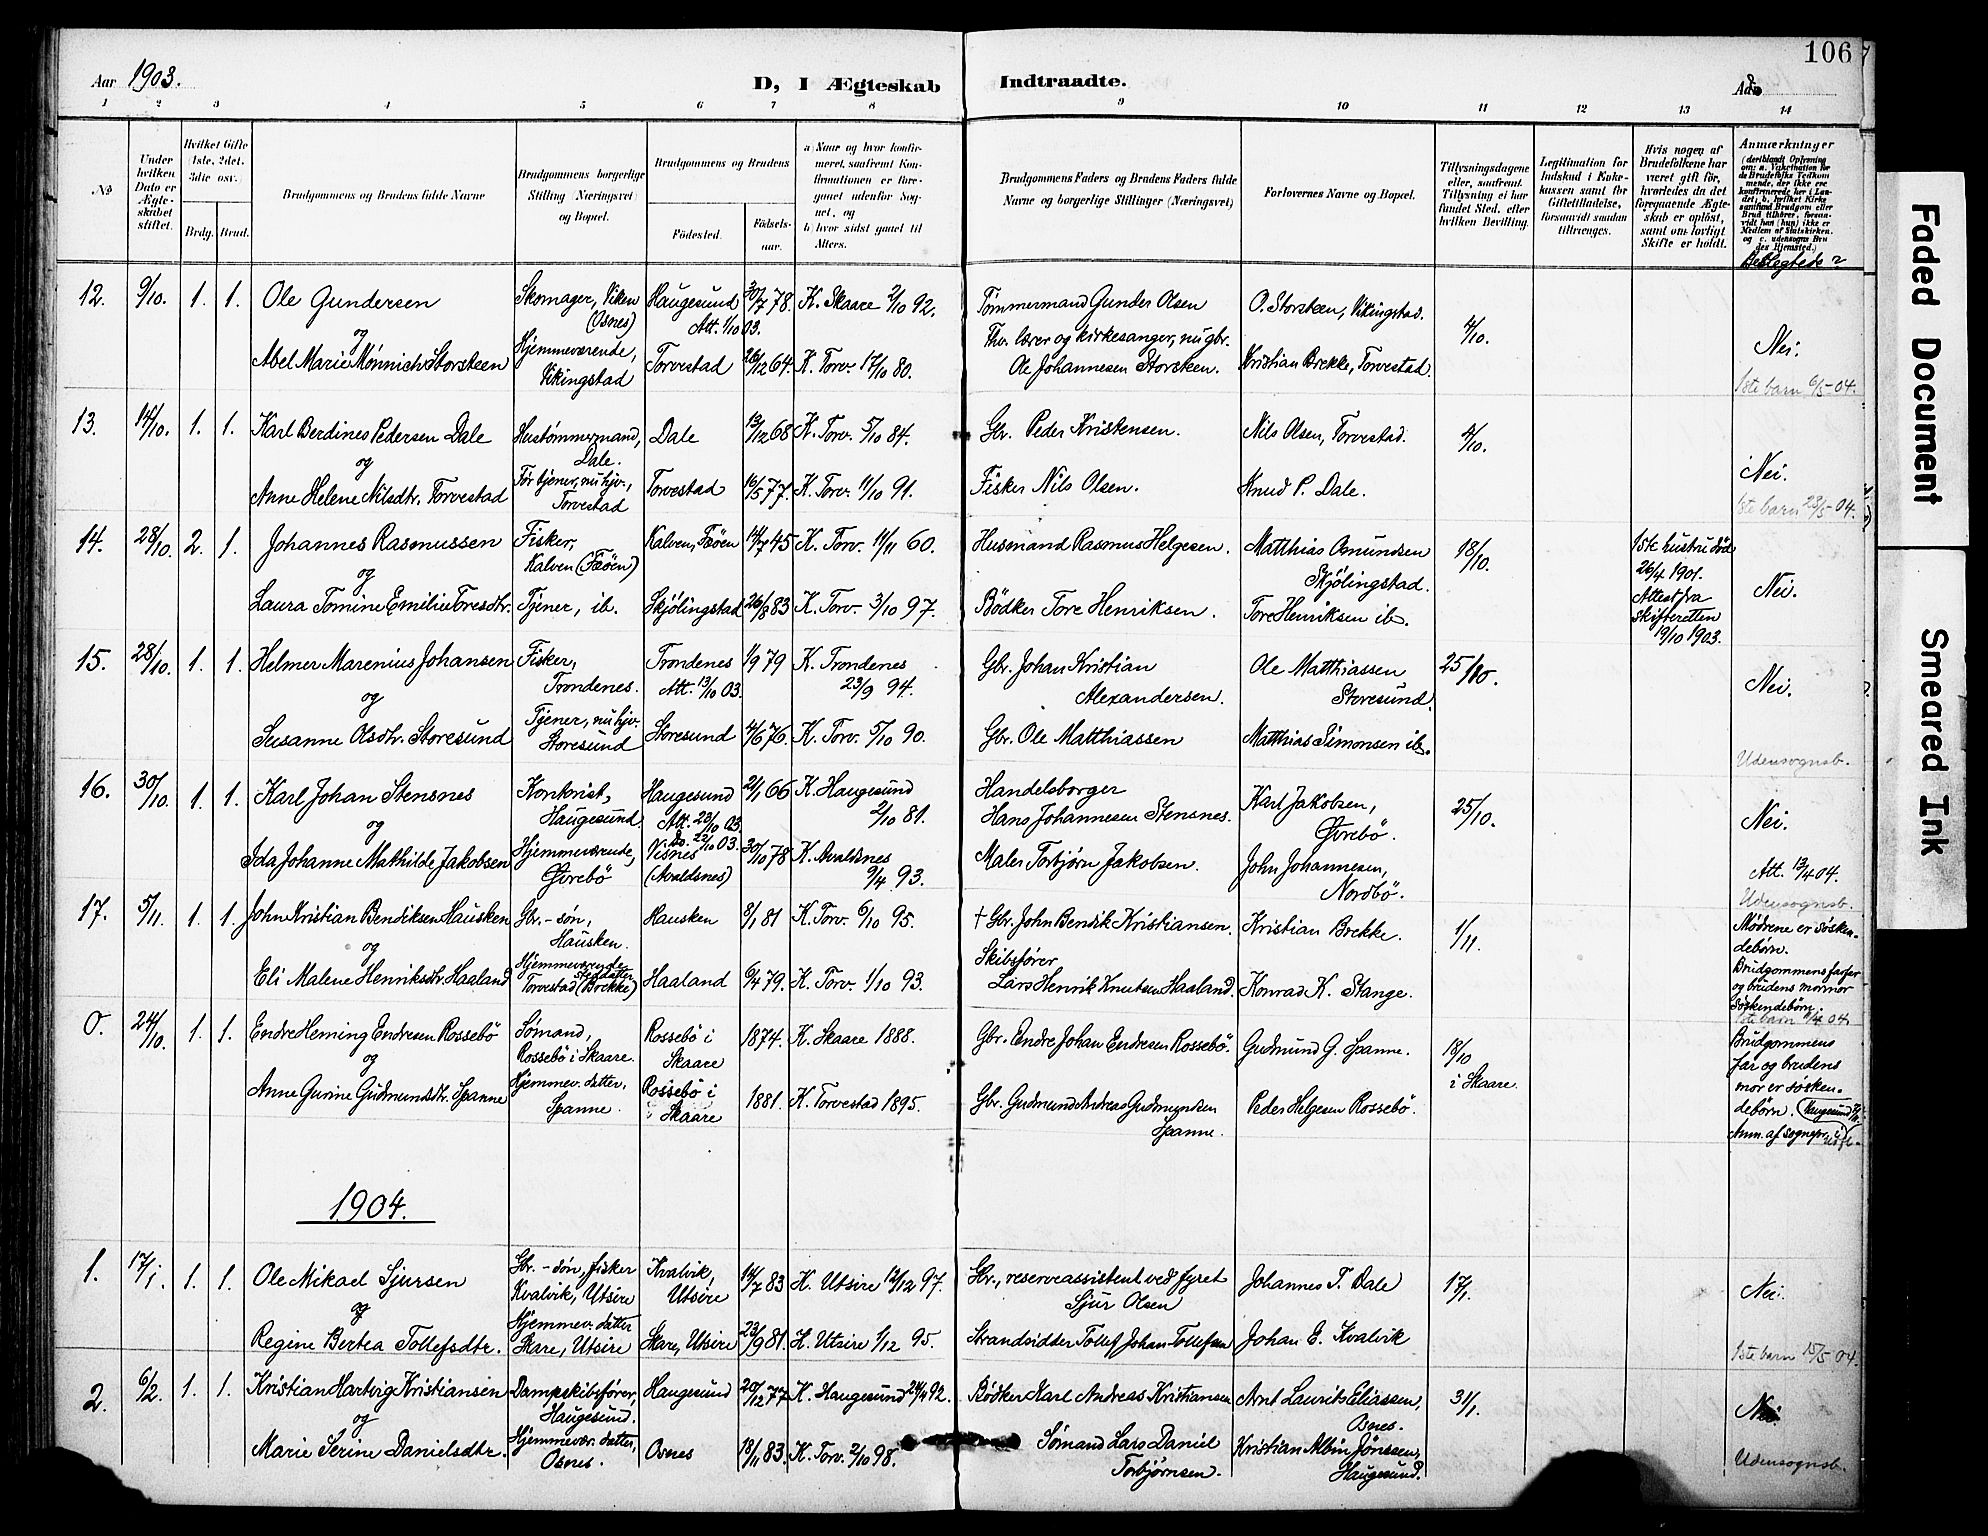 106
Aar 1903.
D, I Ægteskab Indtraadte.
1 2 3 4 5 6 7 8 9 10 11 12 13 14
No
Under hvilken Dato er Ægteskabet stiftet.
Hvilket Gifte (1ste, 2det, 3die osv.)
Brdg. Brud.
Brudgommens og Brudens fulde Navne
Brudgommens borgerlige Stilling (Næringsvei) og Bopæl.
Brudgommens og Brudens
Fødested.
Fødselsaar.
a) Naar og hvor konfirmeret, saafremt Konfirmationen er foregaaet udenfor Sognet, og
b) hvor sidst gaaet til Alters.
Brudgommens Faders og Brudens Faders fulde Navne og borgerlige Stillinger (Næringsvei)
Forlovernes Navne og Bopæl.
Tillysningsdagene eller, saafremt Tillysning ei har fundet Sted, efter hvilken Bevilling.
Legitimation for Indskud i Enkekassen samt for Giftetilladelse, forsaavidt saadan tiltrænges.
Hvis nogen af Brudefolkene har været gift før, hvorledes da det foregaaende Ægteskab er opløst, samt om lovligt Skifte er holdt.
Anmærkninger
(deriblandt Oplysning om: a. Vakcination for de Brudefolks Vedkommende, der ikke ere konfirmerede her i Landet; b. hvilket Kirkesamfund Brudgom eller Brud tilhører, forsaavidt han (hun) ikke er Medlem af Statskirken, og c. udensogns Brudes Hjemsted.)
Beslegtede?
12. 9/10. 1. 1. Ole Gundersen Skomager, Viken (Osnes) Haugesund Att. 1/10 03. 30/7 78. K. Skaare 2/10 92. Tømmermand Gunder Olsen O. Storsteen, Vikingstad. 4/10. Nei.
og
Abel Marie Mønnich Storsteen Hjemmeværende, Vikingstad Torvestad 26/12 64. K. Torv. 17/10 80. Fhv. lærer og kirkesanger, nu gbr. Ole Johannesen Storsteen. Kristian Brekke, Torvestad.
1ste barn 6/5-04.
13. 14/10. 1. 1. Karl Berdines Pedersen Dale Hustømmermand, Dale. Dale 13/12 68 K. Torv. 5/10 84. Gbr. Peder Kristensen. Nils Olsen, Torvestad. 4/10.
og
Anne Helene Nilsdtr. Torvestad Før tjener, nu hjv., Torvestad Torvestad 16/5 77. K. Torv. 11/10 91. Fisker Nils Olsen. Knud P. Dale. Nei.
1ste barn 23/5-04.
14. 28/10. 2. 1. Johannes Rasmussen Fisker, Kalven (Føøen) Kalven, Føøen 14/7 45 K. Torv. 11/11 60. Husmand Rasmus Helgesen. Matthias Osmundsen Skjølingstad. 18/10. 1ste hustru død 26/4 1901. Attest fra skifteretten 19/10 1903. Nei.
og
Laura Tomine Emilie Toresdtr. Tjener, ib. Skjølingstad 26/8 83 K. Torv. 3/10 97. Bødker Tore Henriksen. Tore Henriksen ib.
15. 28/10. 1. 1. Helmer Marenius Johansen Fisker, Trondenes. Trondenes Att. 13/10 03. 1/9 79 K. Trondenes 23/9 94. Gbr. Johan Kristian Alexandersen. Ole Matthiassen Storesund. 25/10. Nei.
og
Susanne Olsdtr. Storesund Tjener, nu hjv. Storesund Storesund 4/6 76. K. Torv. 5/10 90. Gbr. Ole Matthiassen Matthias Simonsen ib.
Udensognsb.
16. 30/10. 1. 1. Karl Johan Stensnes Kontorist, Haugesund. Haugesund Att. 23/10 03. 21/1 66 K. Haugesund 2/10 81. Handelsborger Hans Johannesen Stensnes. Karl Jakobsen, Øvrebø. 25/10. Nei.
og
Ida Johanne Mathilde Jakobsen Hjemmeværende, Øvrebø Do. 22/10 03. Visnes (Avaldsnes) 30/10 78 K. Avaldsnes 9/4 93. Maler Torbjørn Jakobsen. John Johannesen, Nordbø.
Att. 13/4 04.
Udensognsb.
17. 5/11. 1. 1. John Kristian Bendiksen Hausken Gbr.-søn, Hausken. Hausken 8/1 81 K. Torv. 6/10 95. † Gbr. John Bendik Kristiansen. Kristian Brekke. 1/11. Mødrene er søskendebørn. Brudgommens farfar og brudens mormor søskendebørn.
og
Eli Malene Henriksdtr. Haaland Hjemmeværende steddatter Torvestad (Brekke) Haaland 6/4 79. K. Torv. 1/10 93. Skibsfører Lars Henrik Knutsen Haaland. Konrad K. Stange.
1ste barn 4/4 04
0. 24/10. 1. 1. Endre Heming Endresen Rossebø Sømand, Rossebø i Skaare. Rossebø i Skaare 1874. K. Skaare 1888. Gbr. Endre Johan Endresen Rossebø. Gudmund G. Spanne. 18/10 i Skaare. Brudgommens far og brudens mor er søskendebørn.
og
Anne Gurine Gudmundsdtr. Spanne Hjemmev. datter, Spanne. Rossebø i Skaare 1881. K. Torvestad 1895. Gbr. Gudmund Andreas Gudmundsen Spanne. Peder Helgesen Rossebø. Anm. af sognepr. i Haugesund
1904.
1. 17/1. 1. 1. Ole Mikael Sjursen Gbr.-søn, fisker Kvalvik, Utsire Kvalvik, Utsire 14/7 83 K. Utsire 12/12 97. Gbr., reserveassistent ved fyret Sjur Olsen Johannes T. Dale 17/1. Nei.
og
Regine Bertea Tollefsdtr. Hjemmev. datter Skare, Utsire Skare, Utsire 23/9 81 K. Utsire 1/12 95. Strandsidder Tollef Johan Tollefsen Johan E. Kvalvik
1ste barn 15/5 04.
2. 6/2. 1. 1. Kristian Hartvig Kristiansen Dampskibsfører, Haugesund. Haugesund 20/12 77 K. Haugesund 24/4 92. Bødker Karl Andreas Kristiansen Arnt Laurits Eliassen, Osnes. 31/1. Nei
og
Marie Serine Danielsdtr. Hjemmevær. datter, Osnes. Osnes 18/11 83. K. Torv. 2/10 98. Sømand Lars Daniel Torbjørnsen. Kristian Albin Jønssen, Haugesund.
Udensognsb.
Faded Document
Smeared Ink